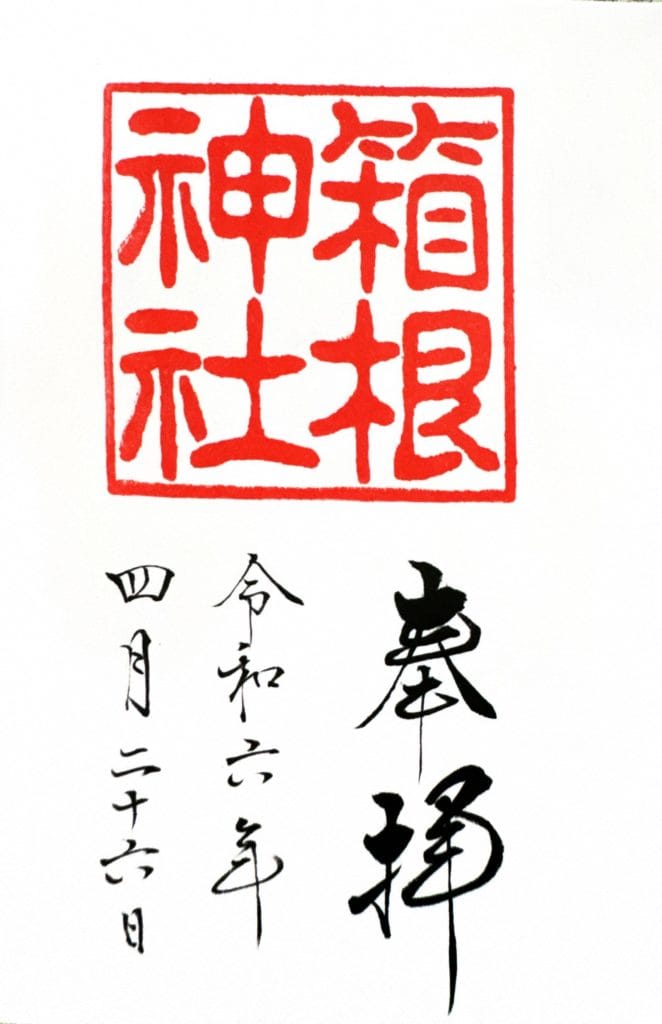 箱根
神社
奉拝
令和六年
四月二十六日